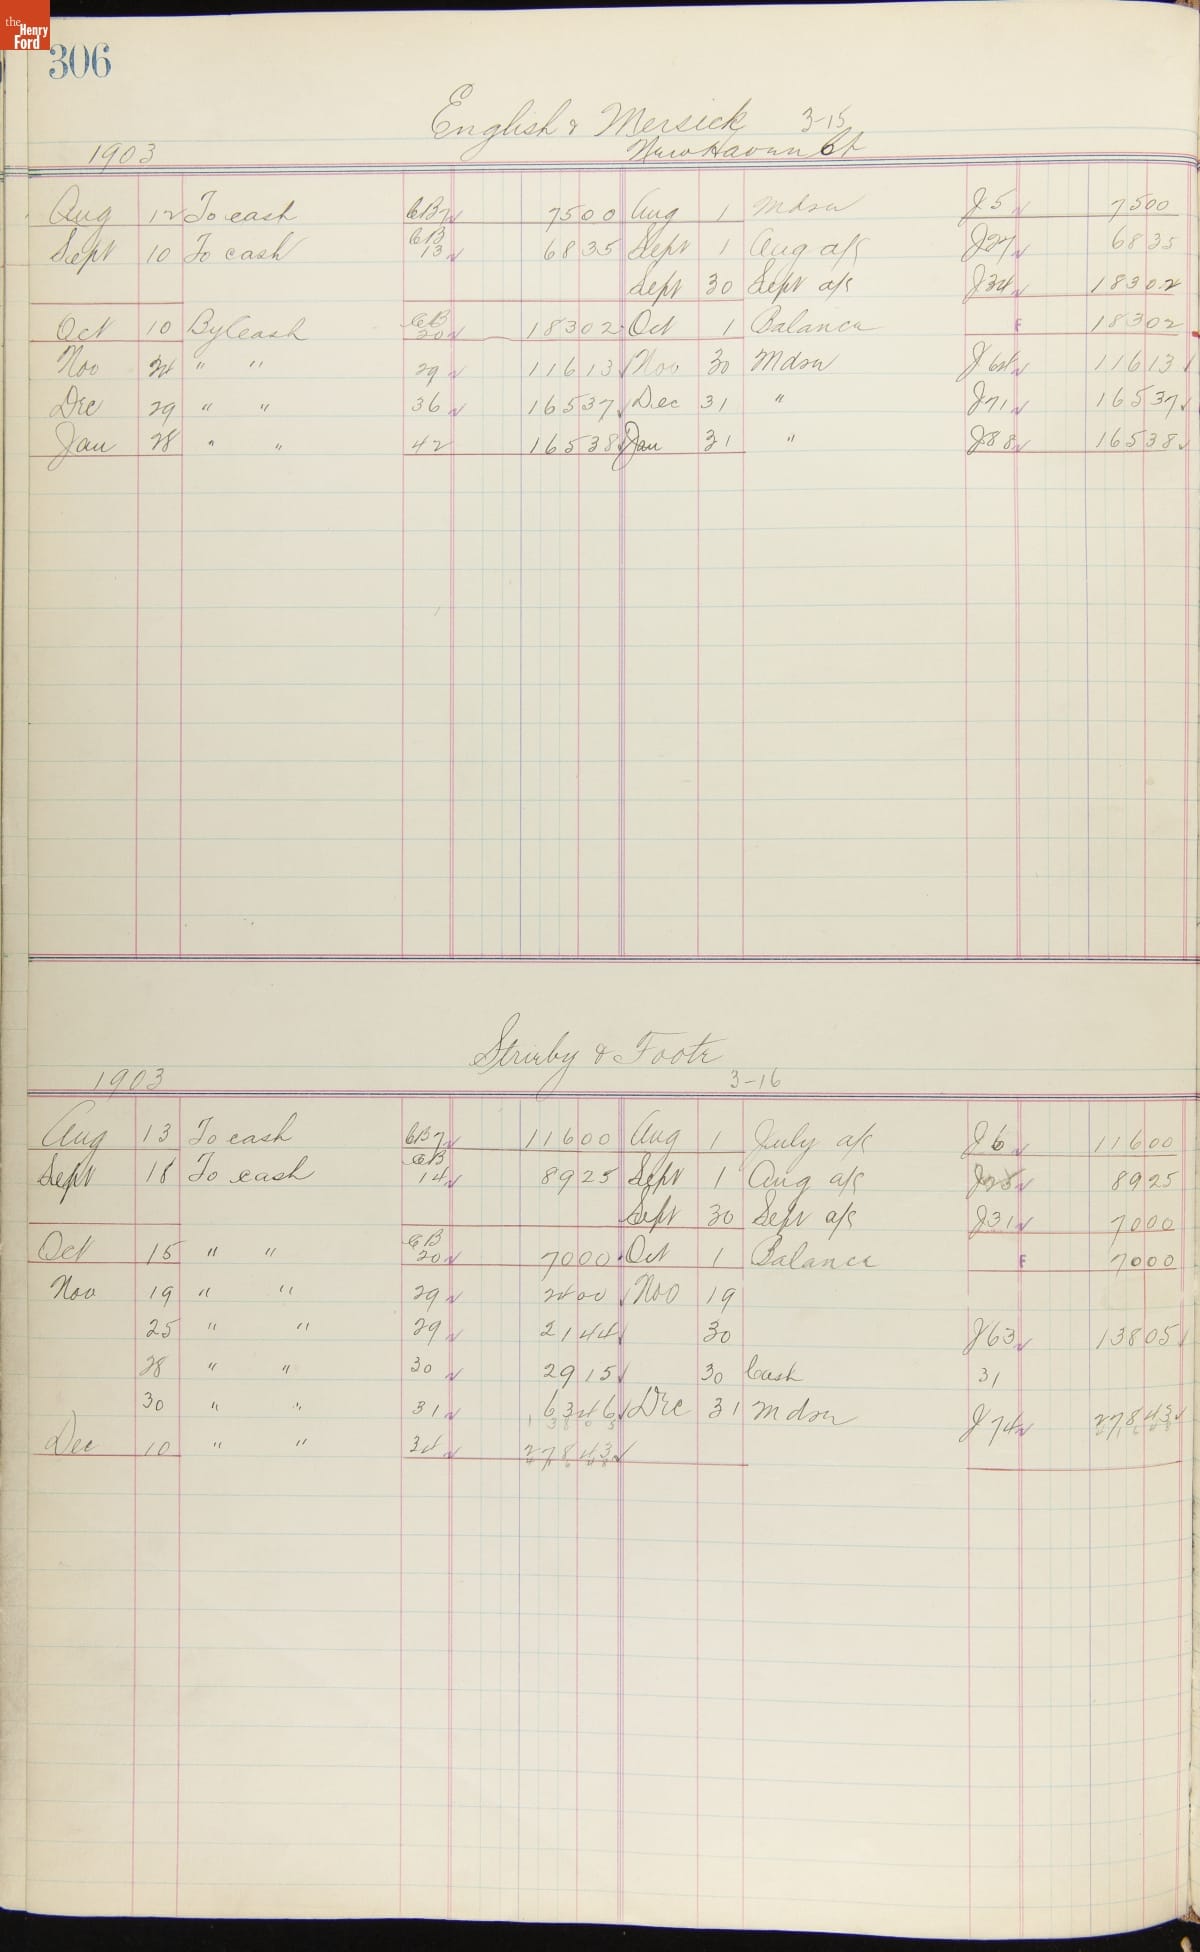 the Henry Ford
306
English & Mersick 3-15
1903 New Haven Ct
Aug 12 To cash CB7 7500 Aug 1 Mdse J5 7500
Sept 10 To cash CB 13 6835 Sept 1 Aug a/c J27 6835
Sept 30 Sept a/c J34 18302
Oct 10 By Cash CB 20 18302 Oct 1 Balance F 18302
Nov 24 " " 29 11613 Nov 30 Mdse J64 11613
Dec 29 " " 36 16537 Dec 31 " J71 16537
Jan 28 " " 42 16538 Jan 31 " J88 16538
& Foote
1903 3-16
Aug 13 To cash CB7 11600 Aug 1 July a/c J6 11600
Sept 18 To cash CB 14 8925 Sept 1 Aug a/c 8925
Sept 30 Sept a/c J31 7000
Oct 15 " " CB 20 7000 Oct 1 Balance F 7000
Nov 19 " " 29 2400 Nov 19
25 " " 29 2144 30 J63 13805
28 " " 30 2915 30 Cash 31
30 " " 31 6346 Dec 31 Mdse J74 27843
13805
Dec 10 " " 34 27843